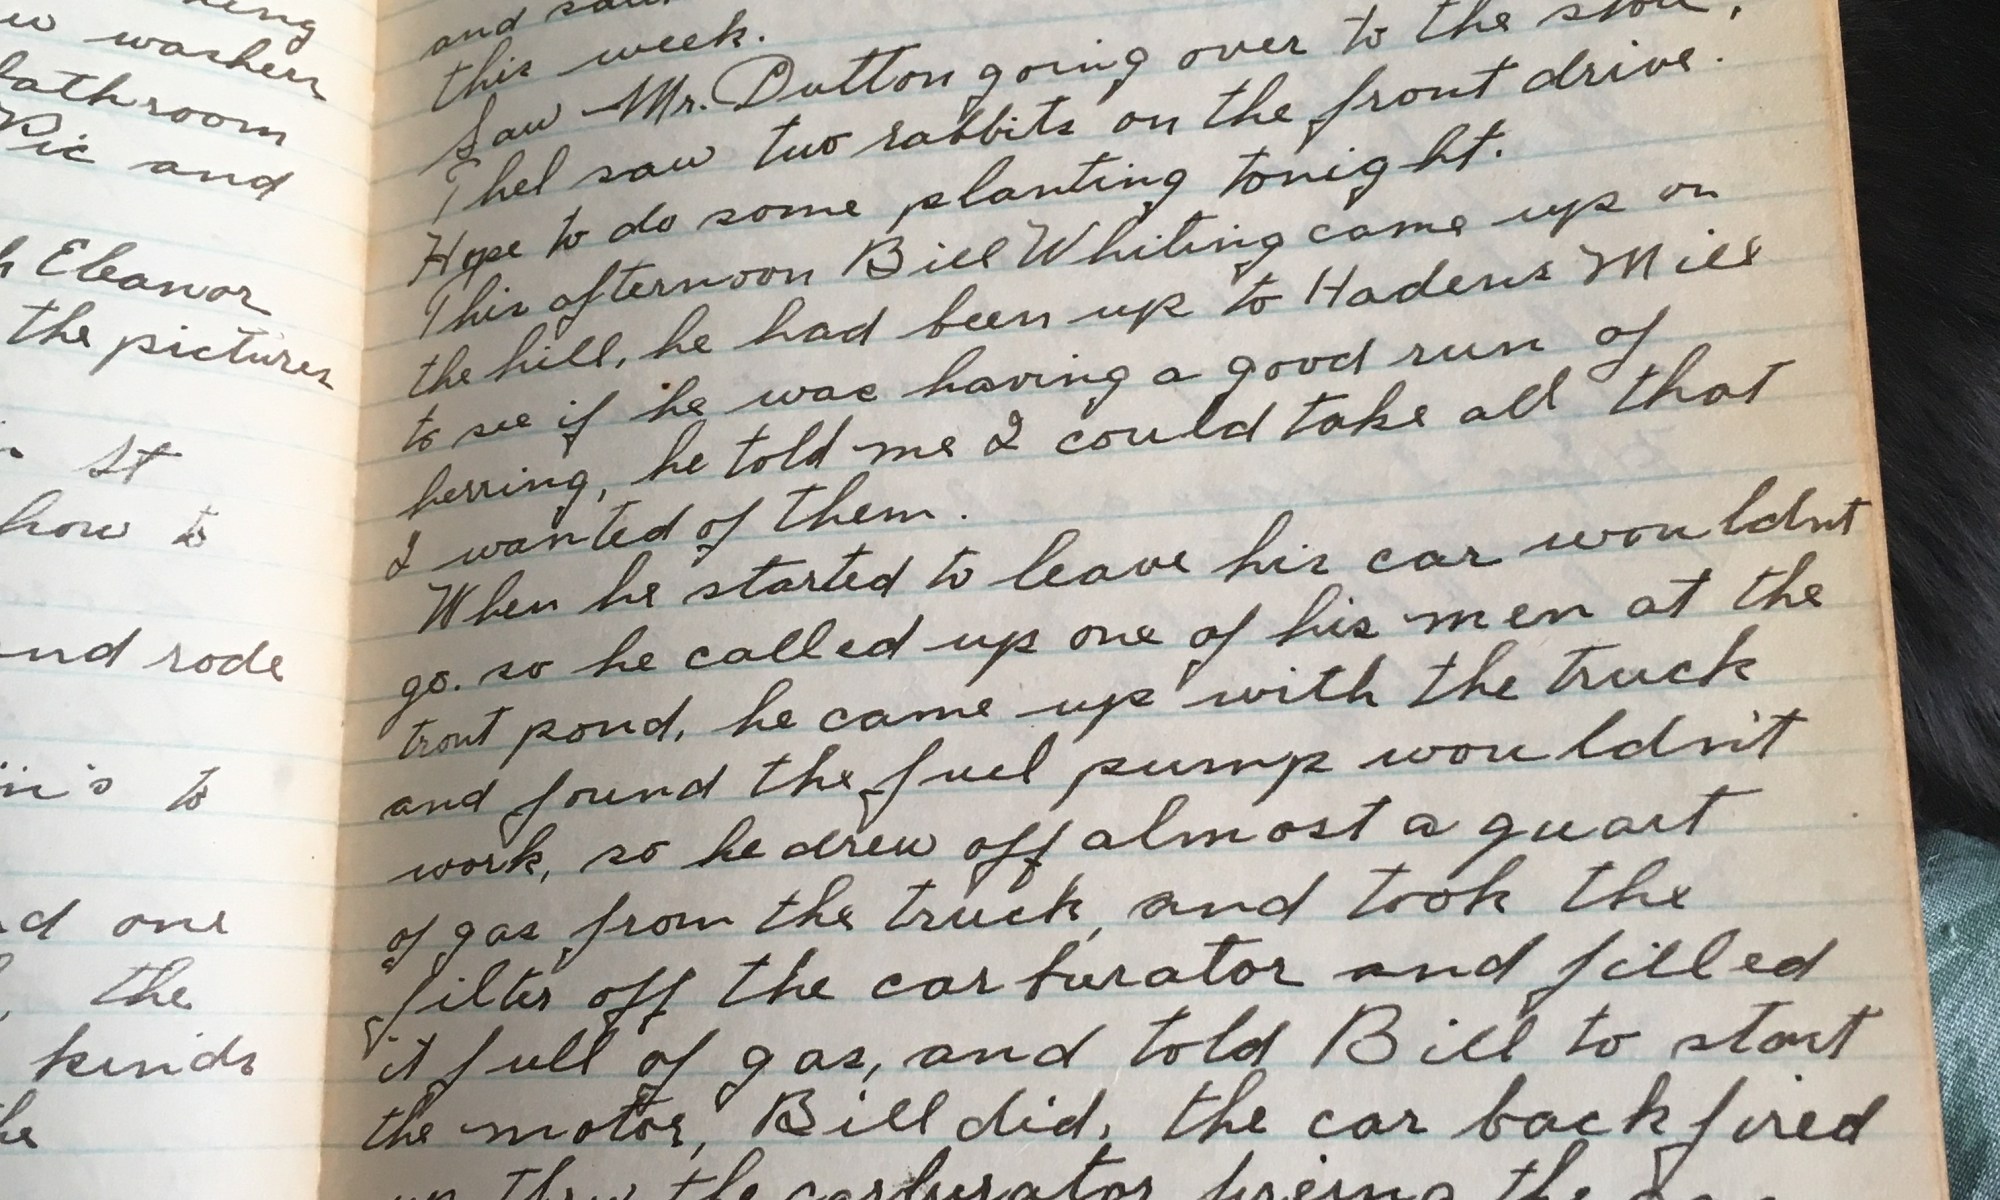 washers
bathroom
Pic and
Eleanor
the pictures
St
how to
and rode
to
one
the
kinds
and
this week.
Saw Mr. Dutton going over to the store,
Thel saw two rabbits on the front drive.
Hope to do some planting tonight.
This afternoon Bill Whiting came up on
the hill, he had been up to Hadens Mill
to see if he was having a good run of
herring, he told me I could take all that
I wanted of them.
When he started to leave his car wouldnt
go. so he called up one of his men at the
trout pond, he came up with the truck
and found the fuel pump wouldn't
work, so he drew off almost a quart
of gas from the truck, and took the
filter off the carburator and filled
it full of gas, and told Bill to start
the motor, Bill did, the car back fired
up thru the carburator, the